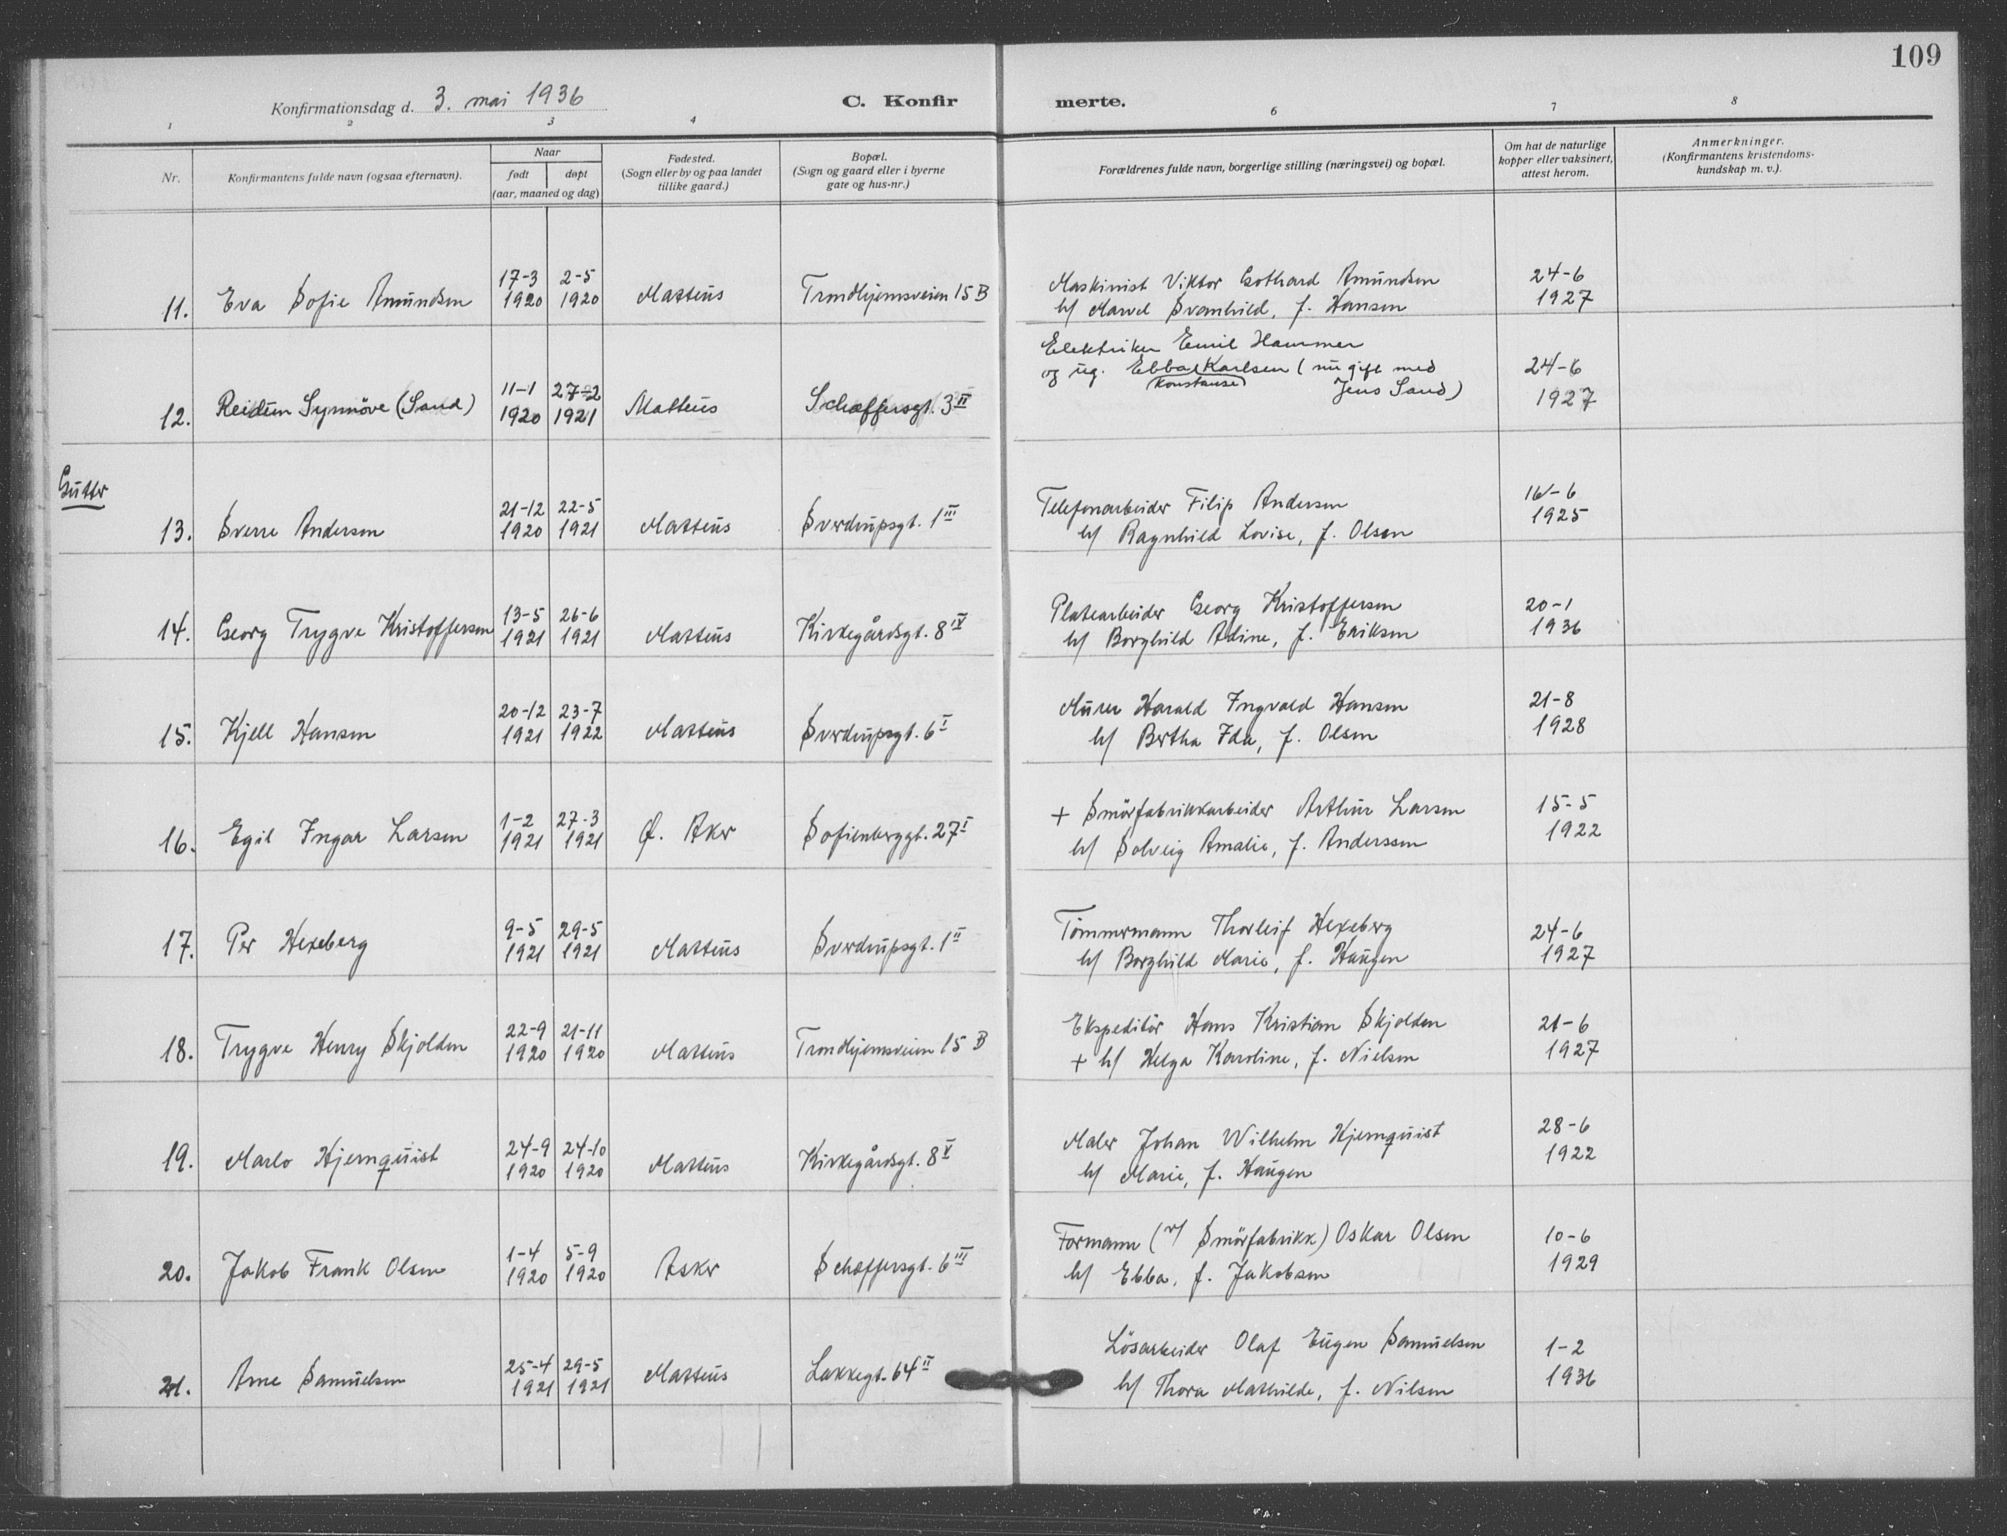 109
Konfirmationsdag d. 3. mai 1936
C. Konfirmerte.
1 2 3 4 6 7 8
Nr.
Konfirmantens fulde navn (ogsaa efternavn).
Naar
født døpt
(aar, maaned og dag)
Fødested.
(Sogn eller by og paa landet
tillike gaard.)
Bopæl.
(Sogn og gaard eller i byerne
gate og hus-nr.)
Forældrenes fulde navn, borgerlige stilling (næringsvei) og bopæl.
Om hat de naturlige
kopper eller vaksinert,
attest herom.
Anmerkninger.
(Konfirmantens kristendoms-
kundskap m. v.).
17-3 2-5 Maskinist Viktor Gothard Amundsen 24-6
11. Eva Sofie Amundsen 1920 1920 Matteus Trondhjemsveien 15 B h/ Marvel Svanhild, f. Hansen 1927
Elektriker Emil Hammer
11-1 27-2 og ug. Ebba Karlsen (nu gift med 24-6
Konstanse Jens Sand)
12. Reidun Synnöve (Sand) 1920 1921 Matteus Schæffersgt. 3 II 1927
Gutter
21-12 22-5 Telefonarbeider Filip Andersen 16-6
13. Sverre Andersen 1920 1921 Matteus Sverdrupsgt. 1 III h/ Ragnhild Lovise, f. Olsen 1925
13-5 26-6 Platearbeider Georg Kristoffersen 20-1
14. Georg Trygve Kristoffersen 1921 1921 Matteus Kirkegårdsgt. 8 IV h/ Borghild Adine, f. Eriksen 1936
20-12 23-7 Murer Harald Ingvald Hansen 21-8
15. Kjell Hansen 1921 1922 Matteus Sverdrupsgt. 6 I h/ Bertha Ida, f. Olsen 1928
1-2 27-3 + Smörfabrikkarbeider Arthur Larsen 15-5
16. Egil Ingar Larsen 1921 1921 Ø. Aker Sofienberggt. 27 I h/ Solveig Amalie, f. Anderssen 1922
9-5 29-5 Tömmermann Thorleif Hexeberg 24-6
17. Per Hexeberg 1921 1921 Matteus Sverdrupsgt. 1 II h/ Borghild Marie, f. Haugen 1927
22-9 21-11 Ekspeditör Hans Kristian Skjolden 21-6
18. Trygve Henry Skjolden 1920 1920 Matteus Trondhjemsveien 15 B + h/ Helga Karoline, f. Nielsen 1927
24-9 24-10 Maler Johan Wilhelm Hjernquist 28-6
19. Marlo Hjernquist 1920 1920 Matteus Kirkegårdsgt. 8 V h/ Marie, f. Haugen 1922
1-4 5-9 Formann (v/ Smörfabrikk) Oskar Olsen 10-6
20. Jakob Frank Olsen 1920 1920 Asker Schæffersgt. 6 III h/ Ebba, f. Jakobsen 1929
25-4 29-5 Lösarbeider Olaf Eugen Samuelsen 1-2
21. Arne Samuelsen 1921 1921 Matteus Lakkegt. 64 II h/ Thora Mathilde, f. Nilsen 1936